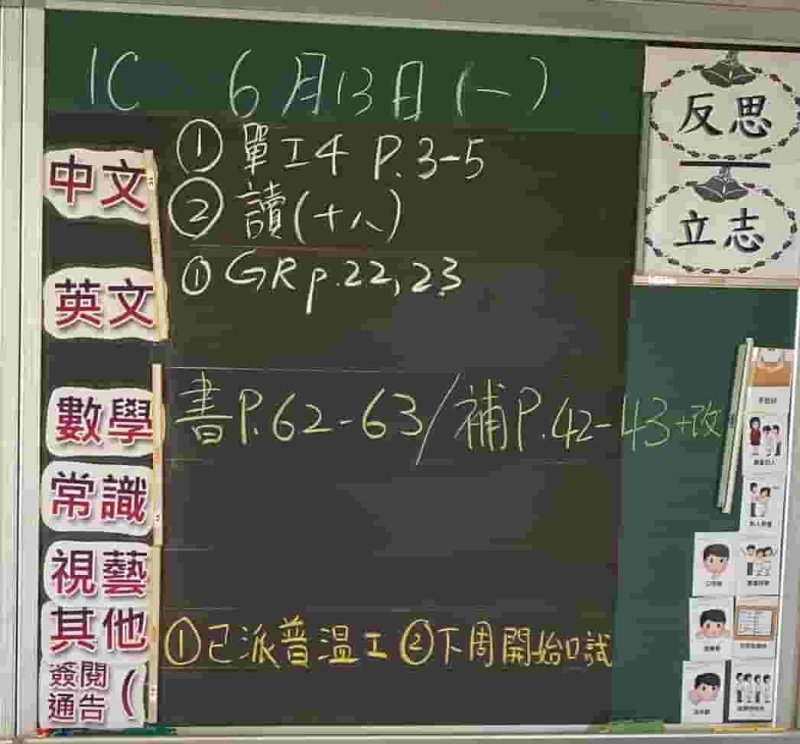 1C 6月13日(一)
反思
立志
中文
①單工4 P.3-5
②讀(十八)
英文
①GR p.22,23
數學
書P.62-63/補P.42-43+改
常識
視藝
其他
①已派普溫工 ②下周開始口試
簽閱
通告(